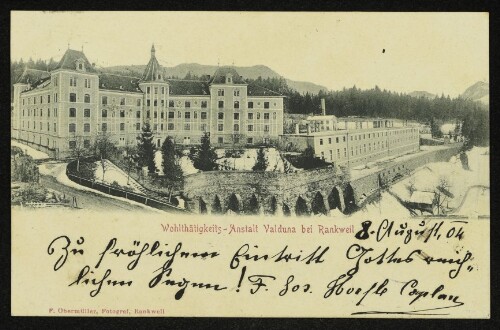 Wohlthätigkeits-Anstalt Valduna bei Rankweil
8. August, 04
Zu fröhlichem Eintritt Gottes reich-
lichen Segen! F. Jos. Caplan
F. Obermüller, Fotograf, Rankweil